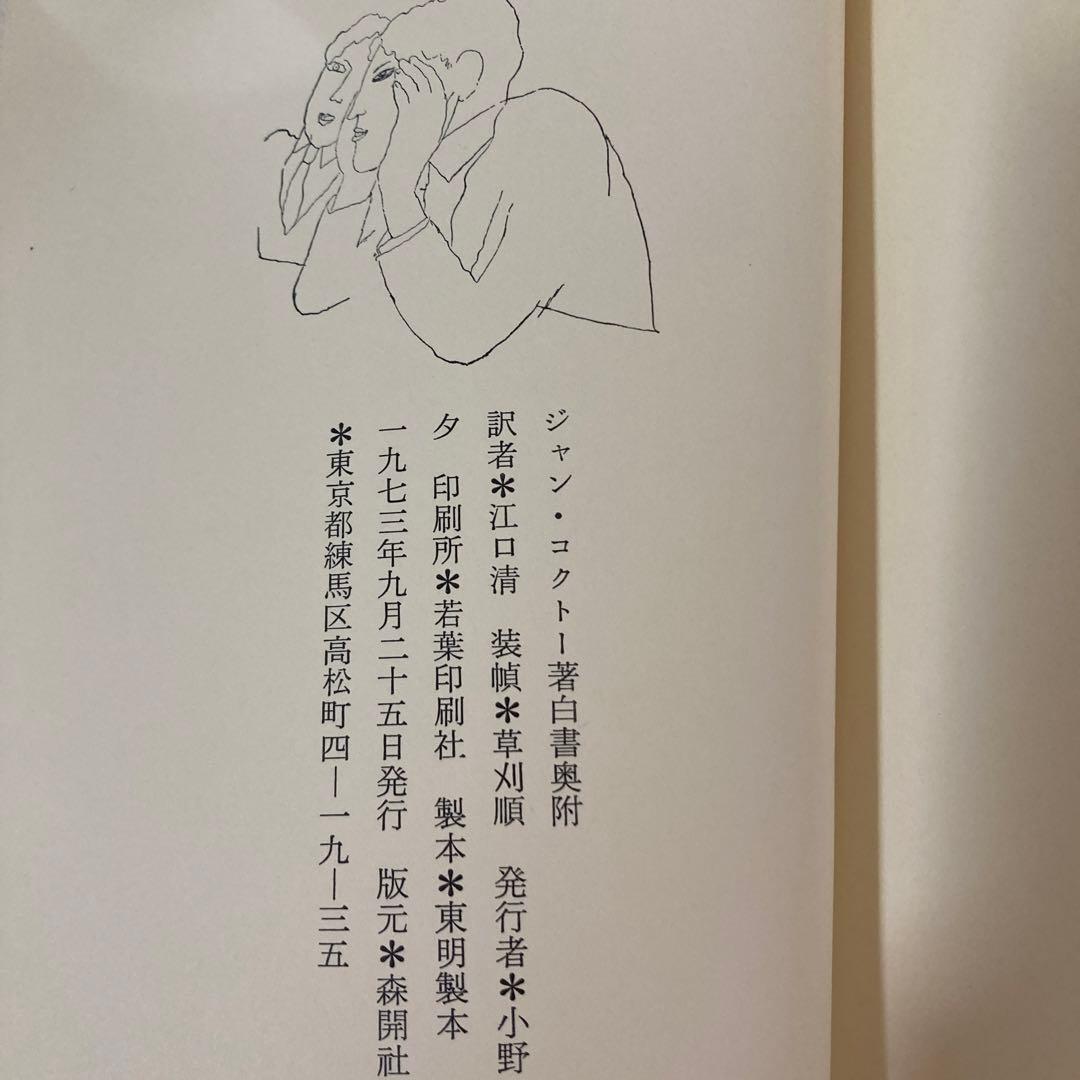 ジャン・コクトー著白書奥附
訳者＊江口清　装幀＊草刈順　発行者＊小野
夕　印刷所＊若葉印刷社　製本＊東明製本
一九七三年九月二十五日発行　版元＊森開社
＊東京都練馬区高松町四―一九―三五